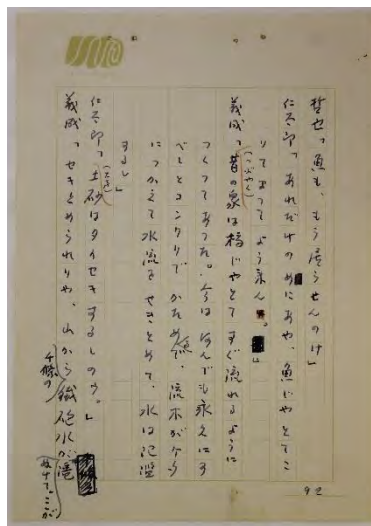 哲也「魚も、もう戻らせんのけ」
仁太郎「あれだけのめにあや、魚じゃとてこ
りてよって よう来ん。」
義成「昔の泉は橋じゃとて すぐ流れるように
(つぶやく)
つくってあった。今は なんでも永久にす
べしとコンクリで かためて、流木がケタ
につかえて 水流を せきとめて、水は氾濫
するし」
仁太郎「土砂はタイセキするしのう。」
(どさ)
義成「せきとめられりゃ、山から鉄砲水が
92